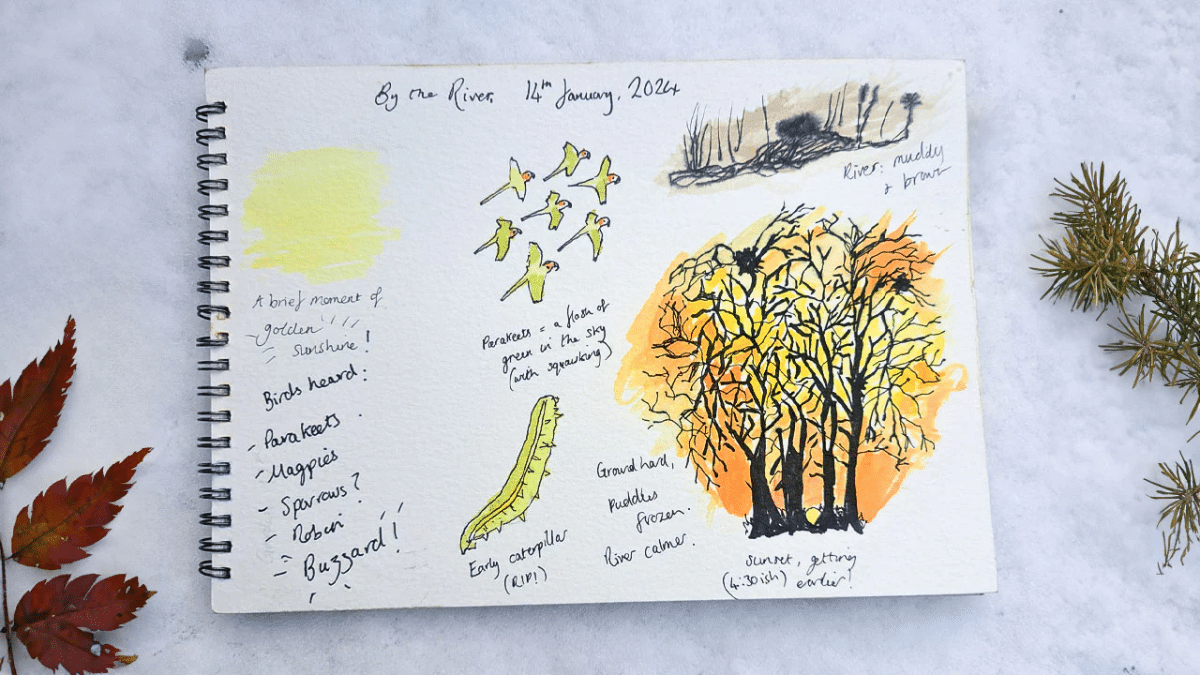 By the River, 14th January, 2024
River: muddy
& brown
A brief moment of
- golden
sunshine!
Birds heard:
- Parakeets
- Magpies
- Sparrows?
- Robin
- Buzzard!
Parakeets = a flash of
green in the sky
(with squawking)
Early caterpillar
(RIP!)
Ground hard,
puddles
frozen.
River calmer.
Sunset, getting
(4:30ish) earlier!